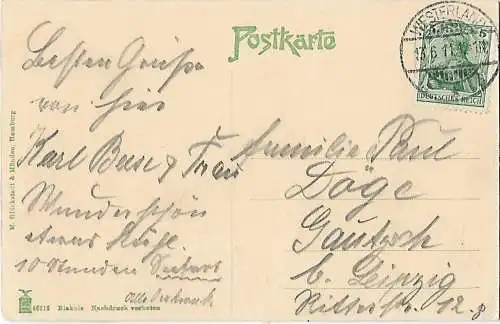 Postkarte
WESTERLAND
13.6.11.
DEUTSCHES REICH
Besten Grüße
von hier
Karl Base & Frau
Wunderschön
etwas kühl.
10 Stunden Seefahrt
Familie Paul
Döge
Gautzsch
b. Leipzig
Ritterstr. 12.
M. Glückstadt & Münden, Hamburg
46216 Blaknis Nachdruck verboten